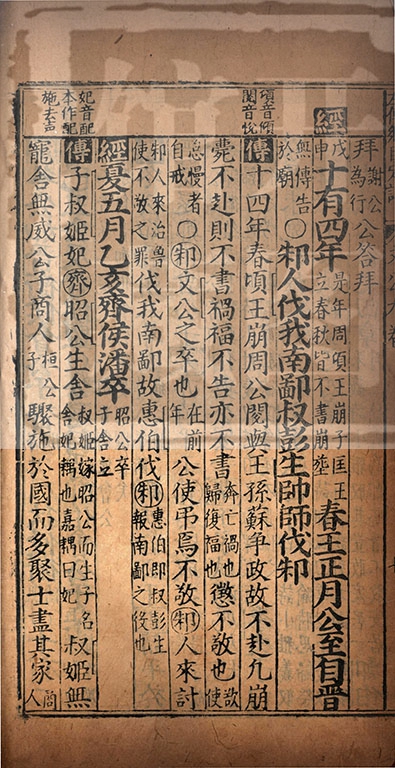 拜謝公為行公答拜
經十有四年戊申是年周頃王崩子匡王立春秋皆不書崩葬春王正月公至自晉
無傳告於廟○邾人伐我南鄙叔彭生帥師伐邾
頃音傾
閱音悅
傳十四年春頃王崩周公閱與王孫蘇爭政故不赴凢崩
薨不赴則不書禍福不告亦不書奔亡禍也歸復福也懲不敬也欲使
怠慢者自戒○邾文公之卒也在前年公使弔焉不敬邾人來討
邾人來治魯使不敬之罪伐我南鄙故惠伯伐邾惠伯即叔彭生報南鄙之役也
經夏五月乙亥齊侯潘卒昭公卒子舍立
妃音配
本作配
施去声
傳子叔姬妃齊昭公生舍叔姬嫁昭公而生子名舍妃耦也嘉耦曰妃叔姬無
寵舍無威公子商人桓公子驟施於國而多聚士盡其家商人